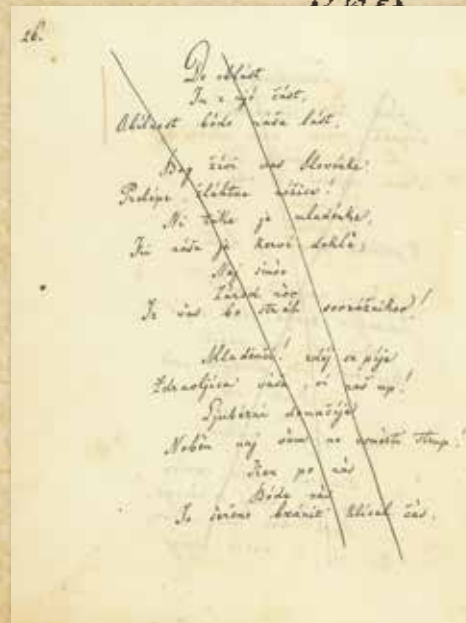 26.
De oblast
In z njó čast,
Obilnost bóde náša last.
Bog živi vas Slovénke
Prelépe, žláhtne róžice!
Ni take je mladénke,
náše je kerví deklè;
Naj sinóv
Zárod nòv
Iz vas bo stráh sovrážnikov!
Mladénči! zdéj se pije
Zdravljica váša, vi naš up!
Ljubézni domačije
Nobèn naj vàm ne usmŕti strup!
Ker po nàs
Bóde vàs
Jo serčno bránit' klical čàs.